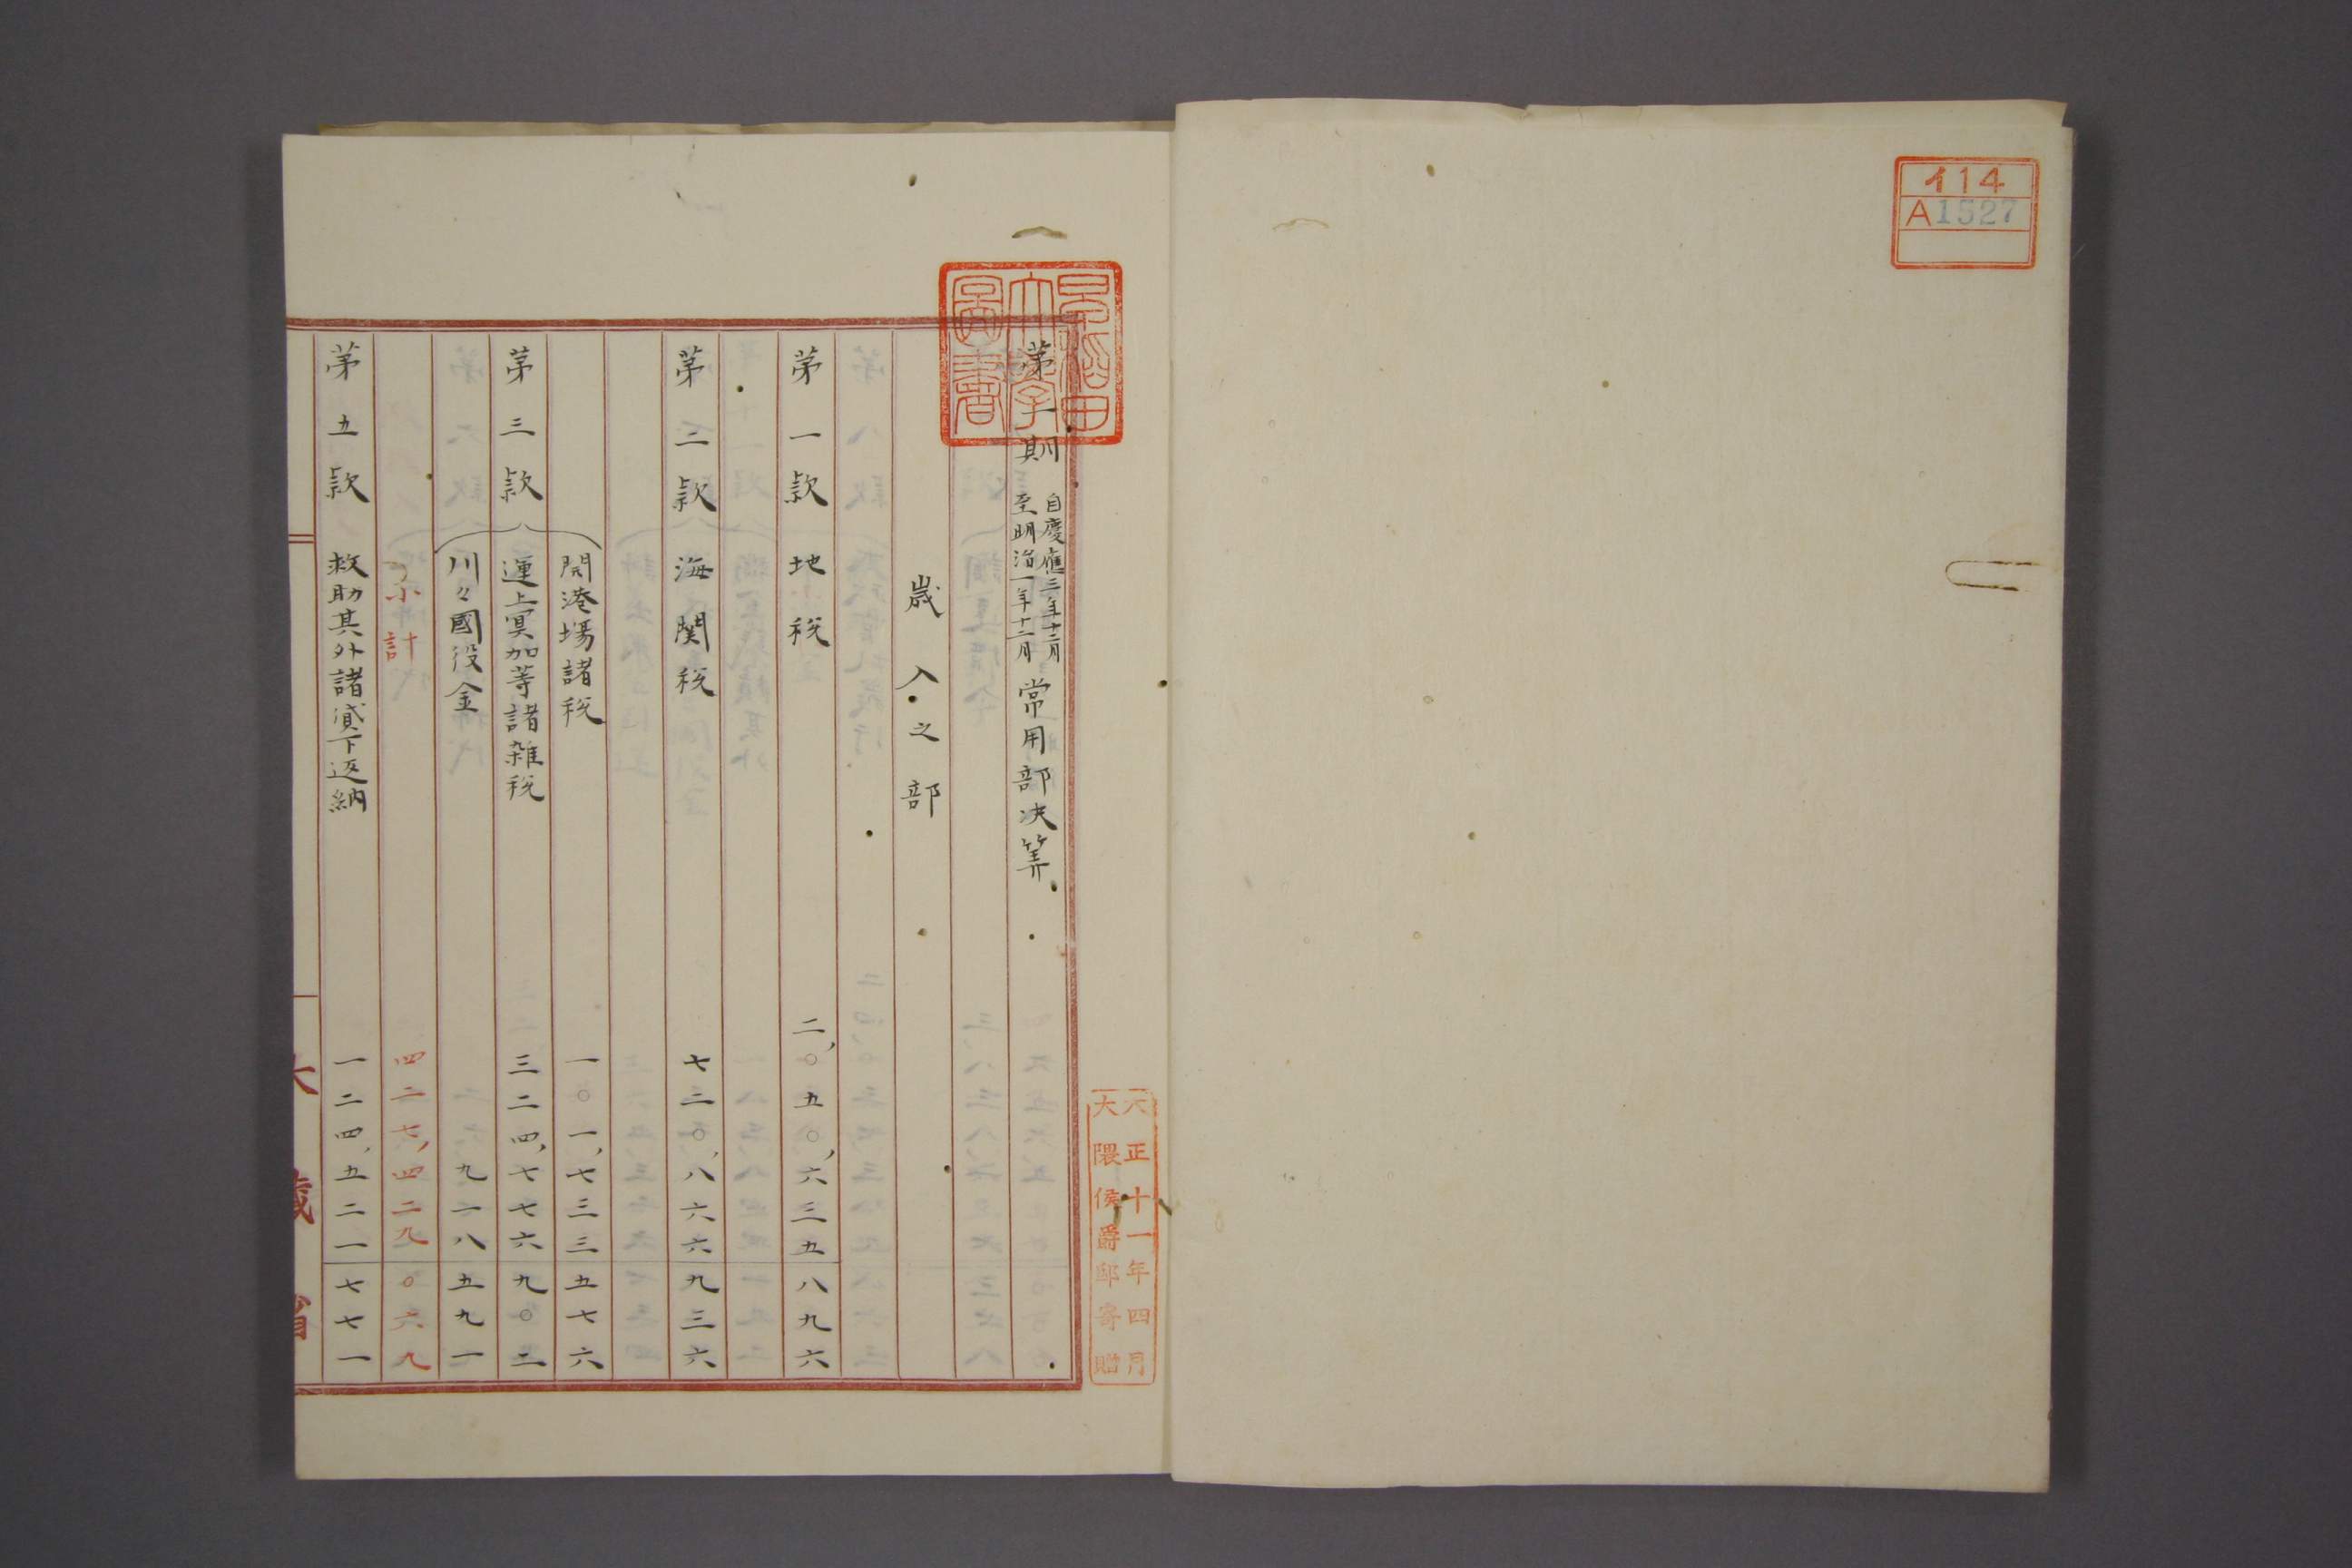 イ14
A1527
大正十一年四月
大隈侯爵邸寄贈
早稲田
大学
圖書
苐一期 自慶應三年十二月至明治一年十二月 常用部决筭
歳入之部
苐一款 地税 二,〇五〇,六三五八九六
苐二款 海関税 七二〇,八六六九三六
開港塲諸税 一〇一,七三三五七六
苐三款 運上冥加等諸雑税 三二四,七七六九〇二
川々國役金 九一八五九一
小計 四二七,四二九〇六九
苐五款 救助其外諸貸下返納 一二四,五二一七七一
大藏省